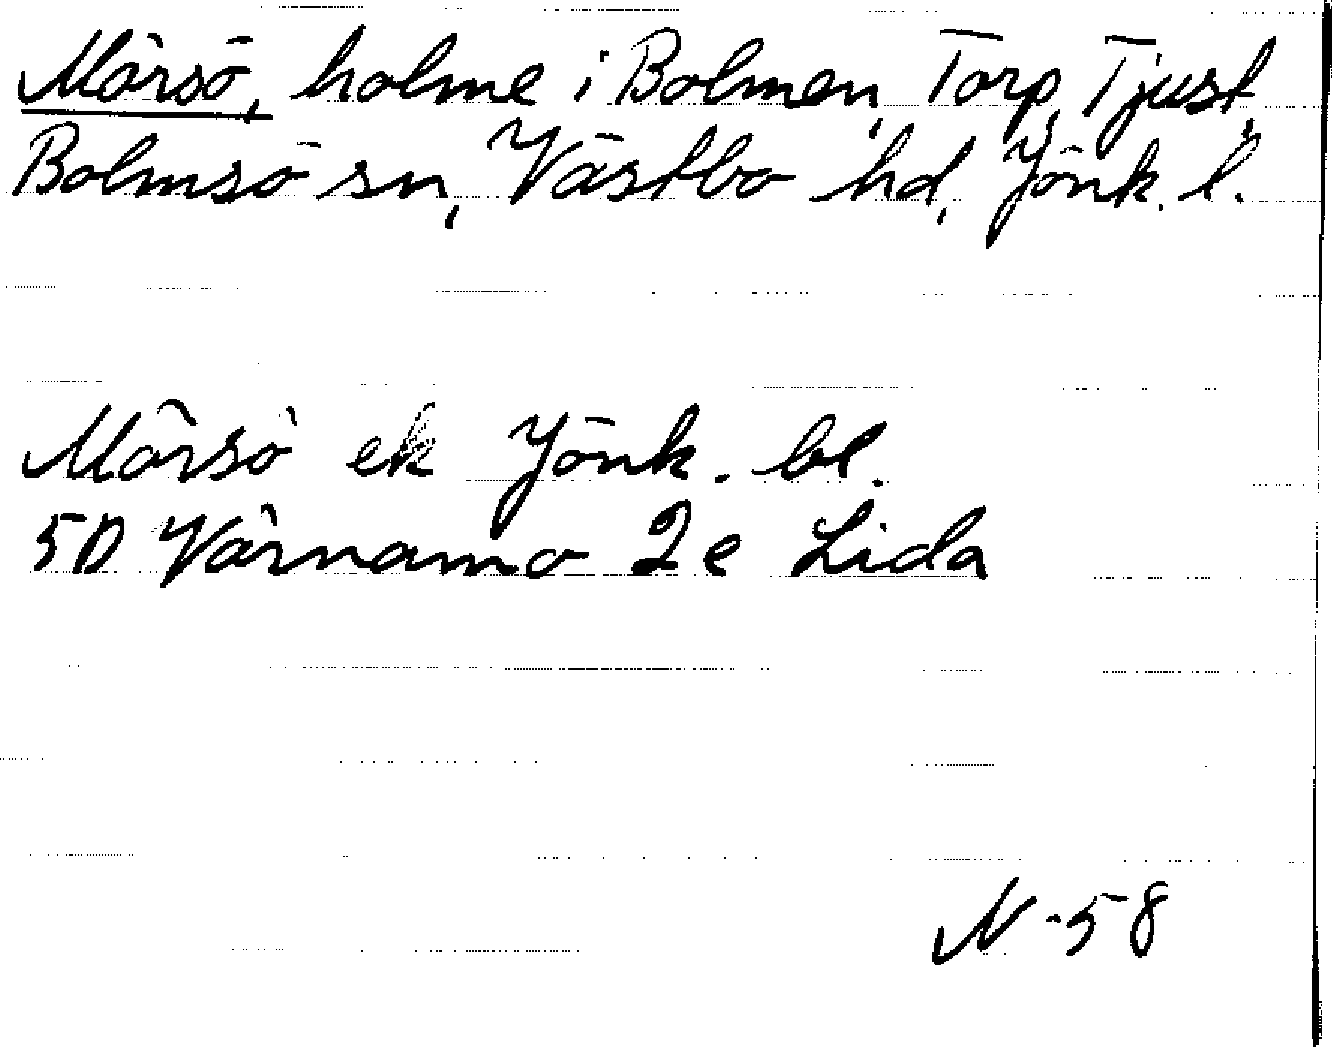 Mårsö, holme i Bolmen, Torp, Tjust,
Bolmsö sn, Västbo hd, Jönk. l.
Mårsö ek Jönk. bl.
5D Värnamo 2e Lida
N-58